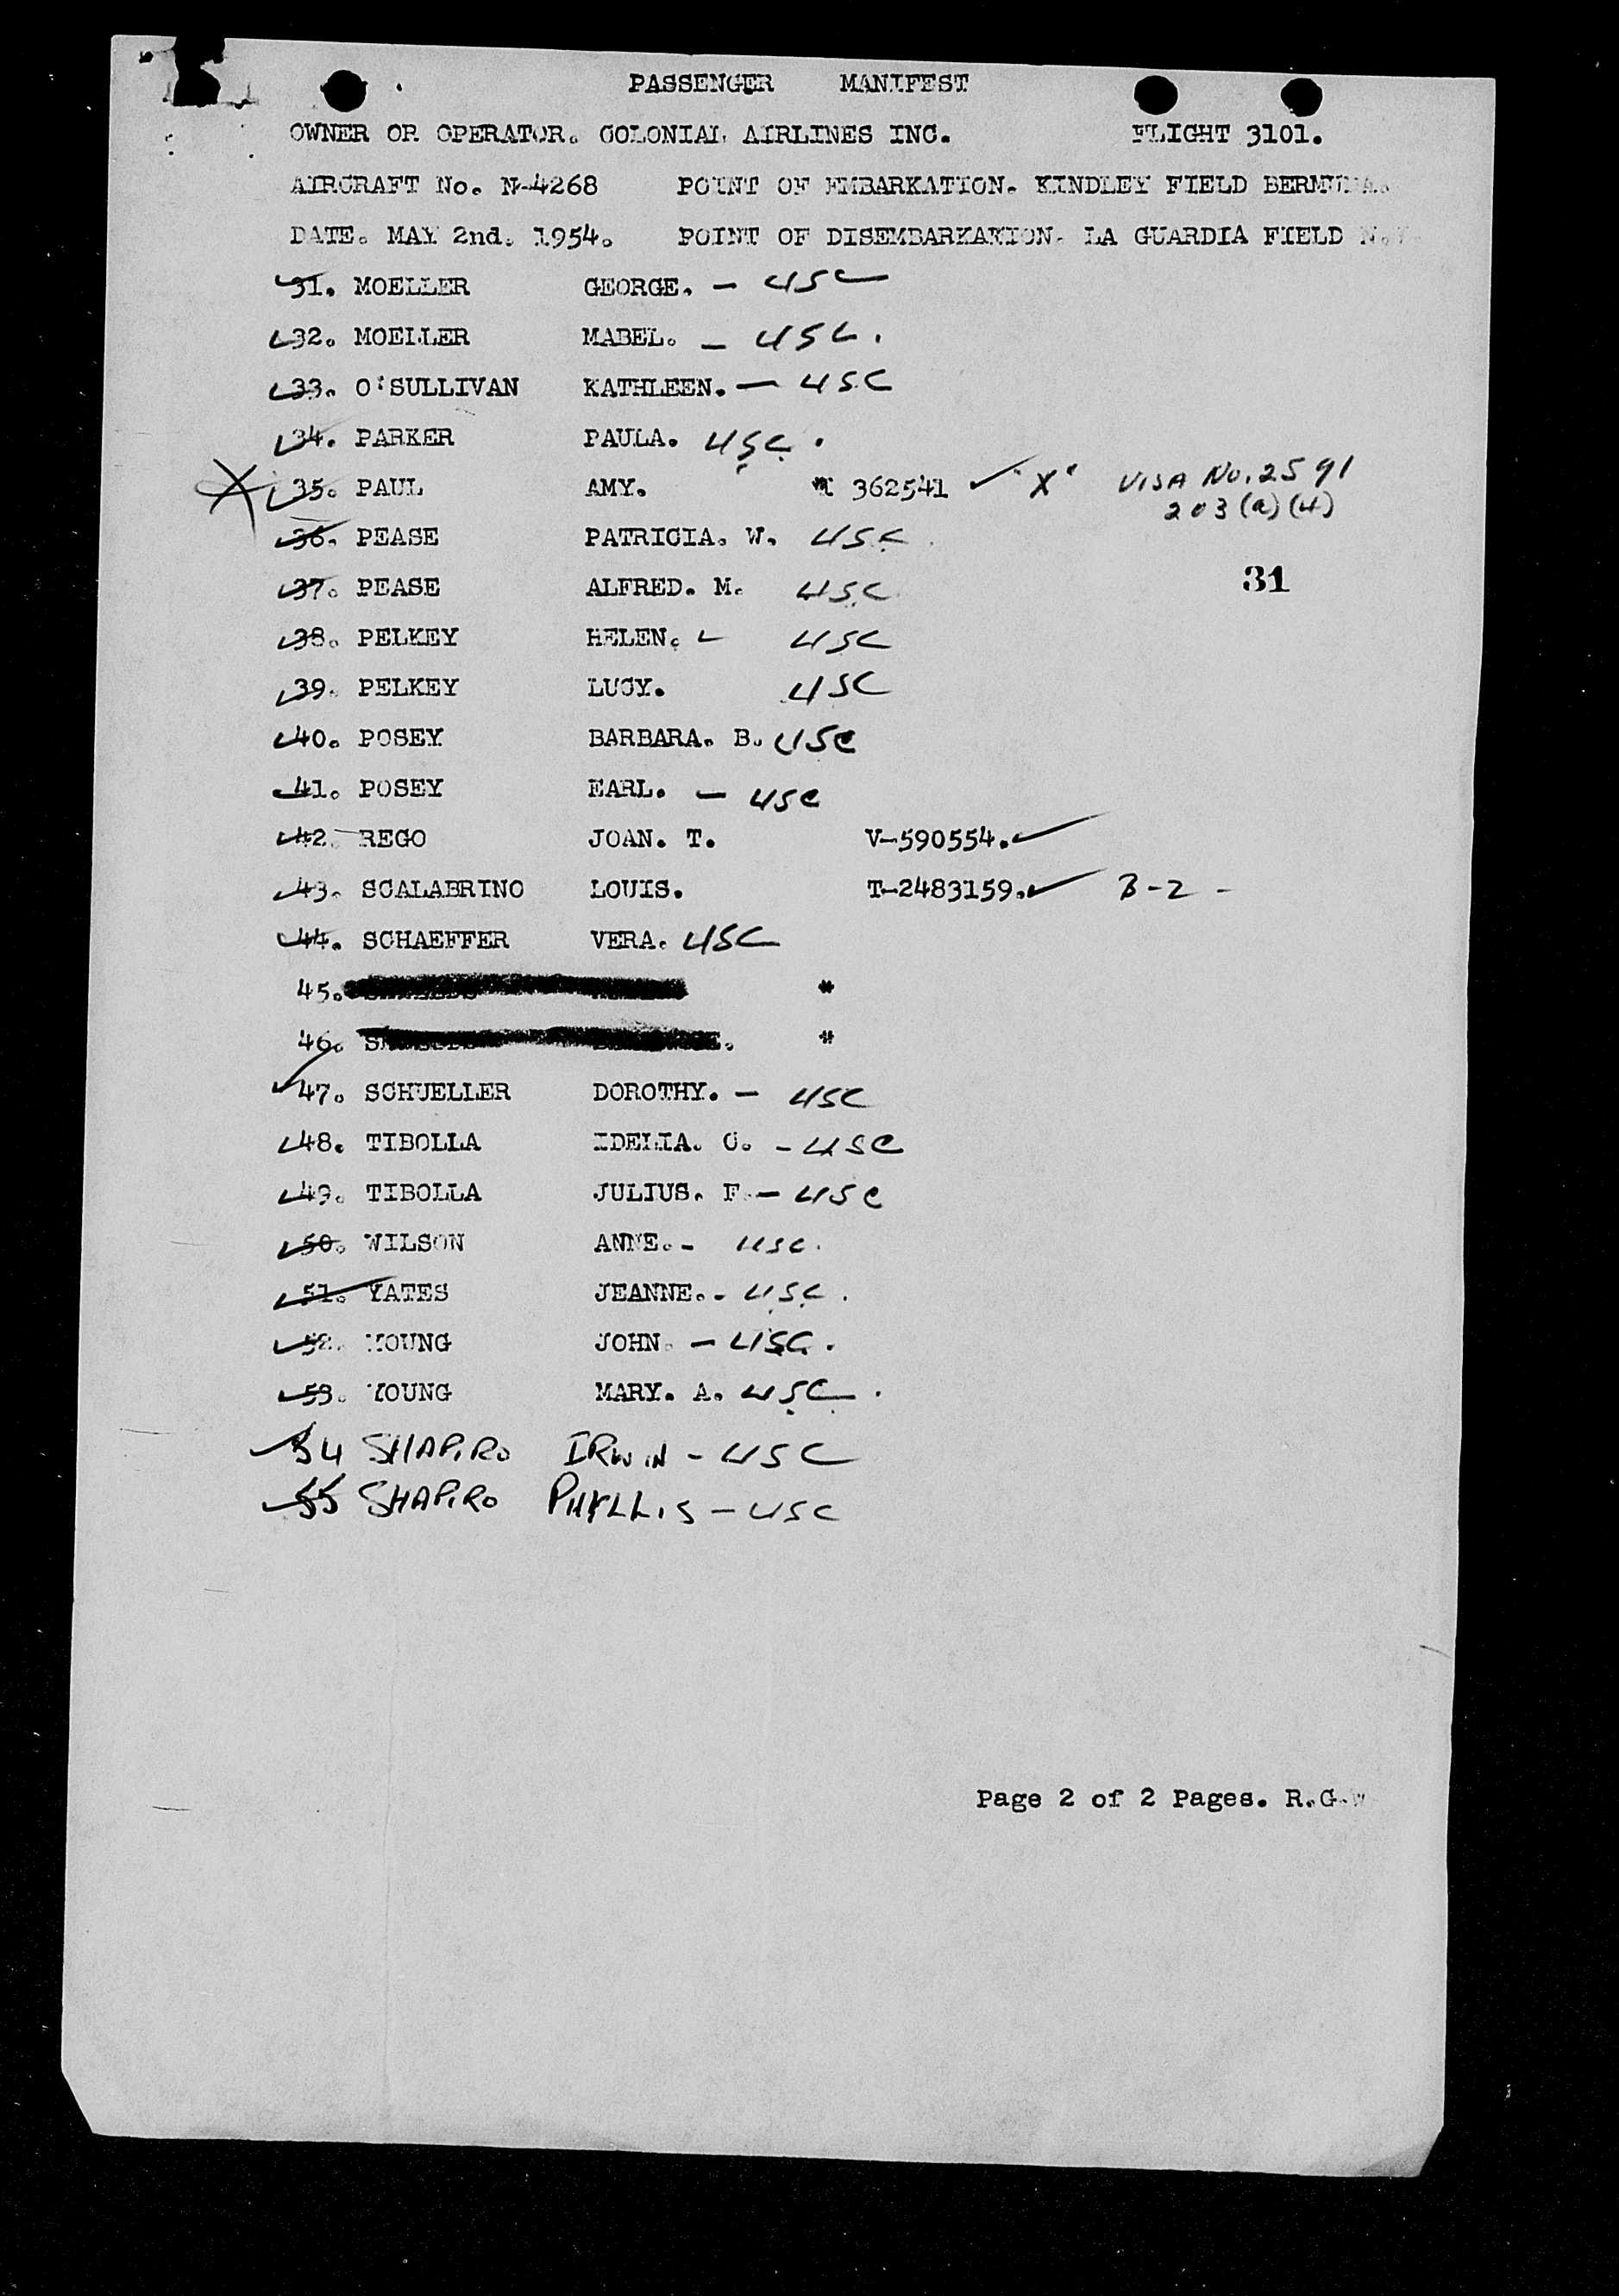 PASSENGER MANIFEST
OWNER OR OPERATOR. COLONIAL AIRLINES INC. FLIGHT 3101.
AIRCRAFT No. N-4268 POINT OF EMBARKATION. KINDLEY FIELD BERMUDA.
DATE. MAY 2nd. 1954. POINT OF DISEMBARKATION. LA GUARDIA FIELD N.Y.
31. MOELLER GEORGE. - USC
32. MOELLER MABEL. - USC.
33. O'SULLIVAN KATHLEEN. - USC
34. PARKER PAULA. USC.
35. PAUL AMY. 362541 ✓ "X" VISA No. 2591
203(a)(4)
36. PEASE PATRICIA. W. USC
37. PEASE ALFRED. M. USC
31
38. PELKEY HELEN. USC
39. PELKEY LUCY. USC
40. POSEY BARBARA. B. USC
41. POSEY EARL. - USC
42. REGO JOAN. T. V-590554. ✓
43. SCALABRINO LOUIS. T-2483159. ✓ B-2 -
44. SCHAEFFER VERA. USC
45. *
46. *
47. SCHUELLER DOROTHY. - USC
48. TIBOLLA IDELIA. C. - USC
49. TIBOLLA JULIUS. F. - USC
50. WILSON ANNE. - USC.
51. YATES JEANNE. - USC.
52. YOUNG JOHN. - USC.
53. YOUNG MARY. A. USC.
54 SHAPIRO IRWIN - USC
55 SHAPIRO PHYLLIS - USC
Page 2 of 2 Pages. R.G.W